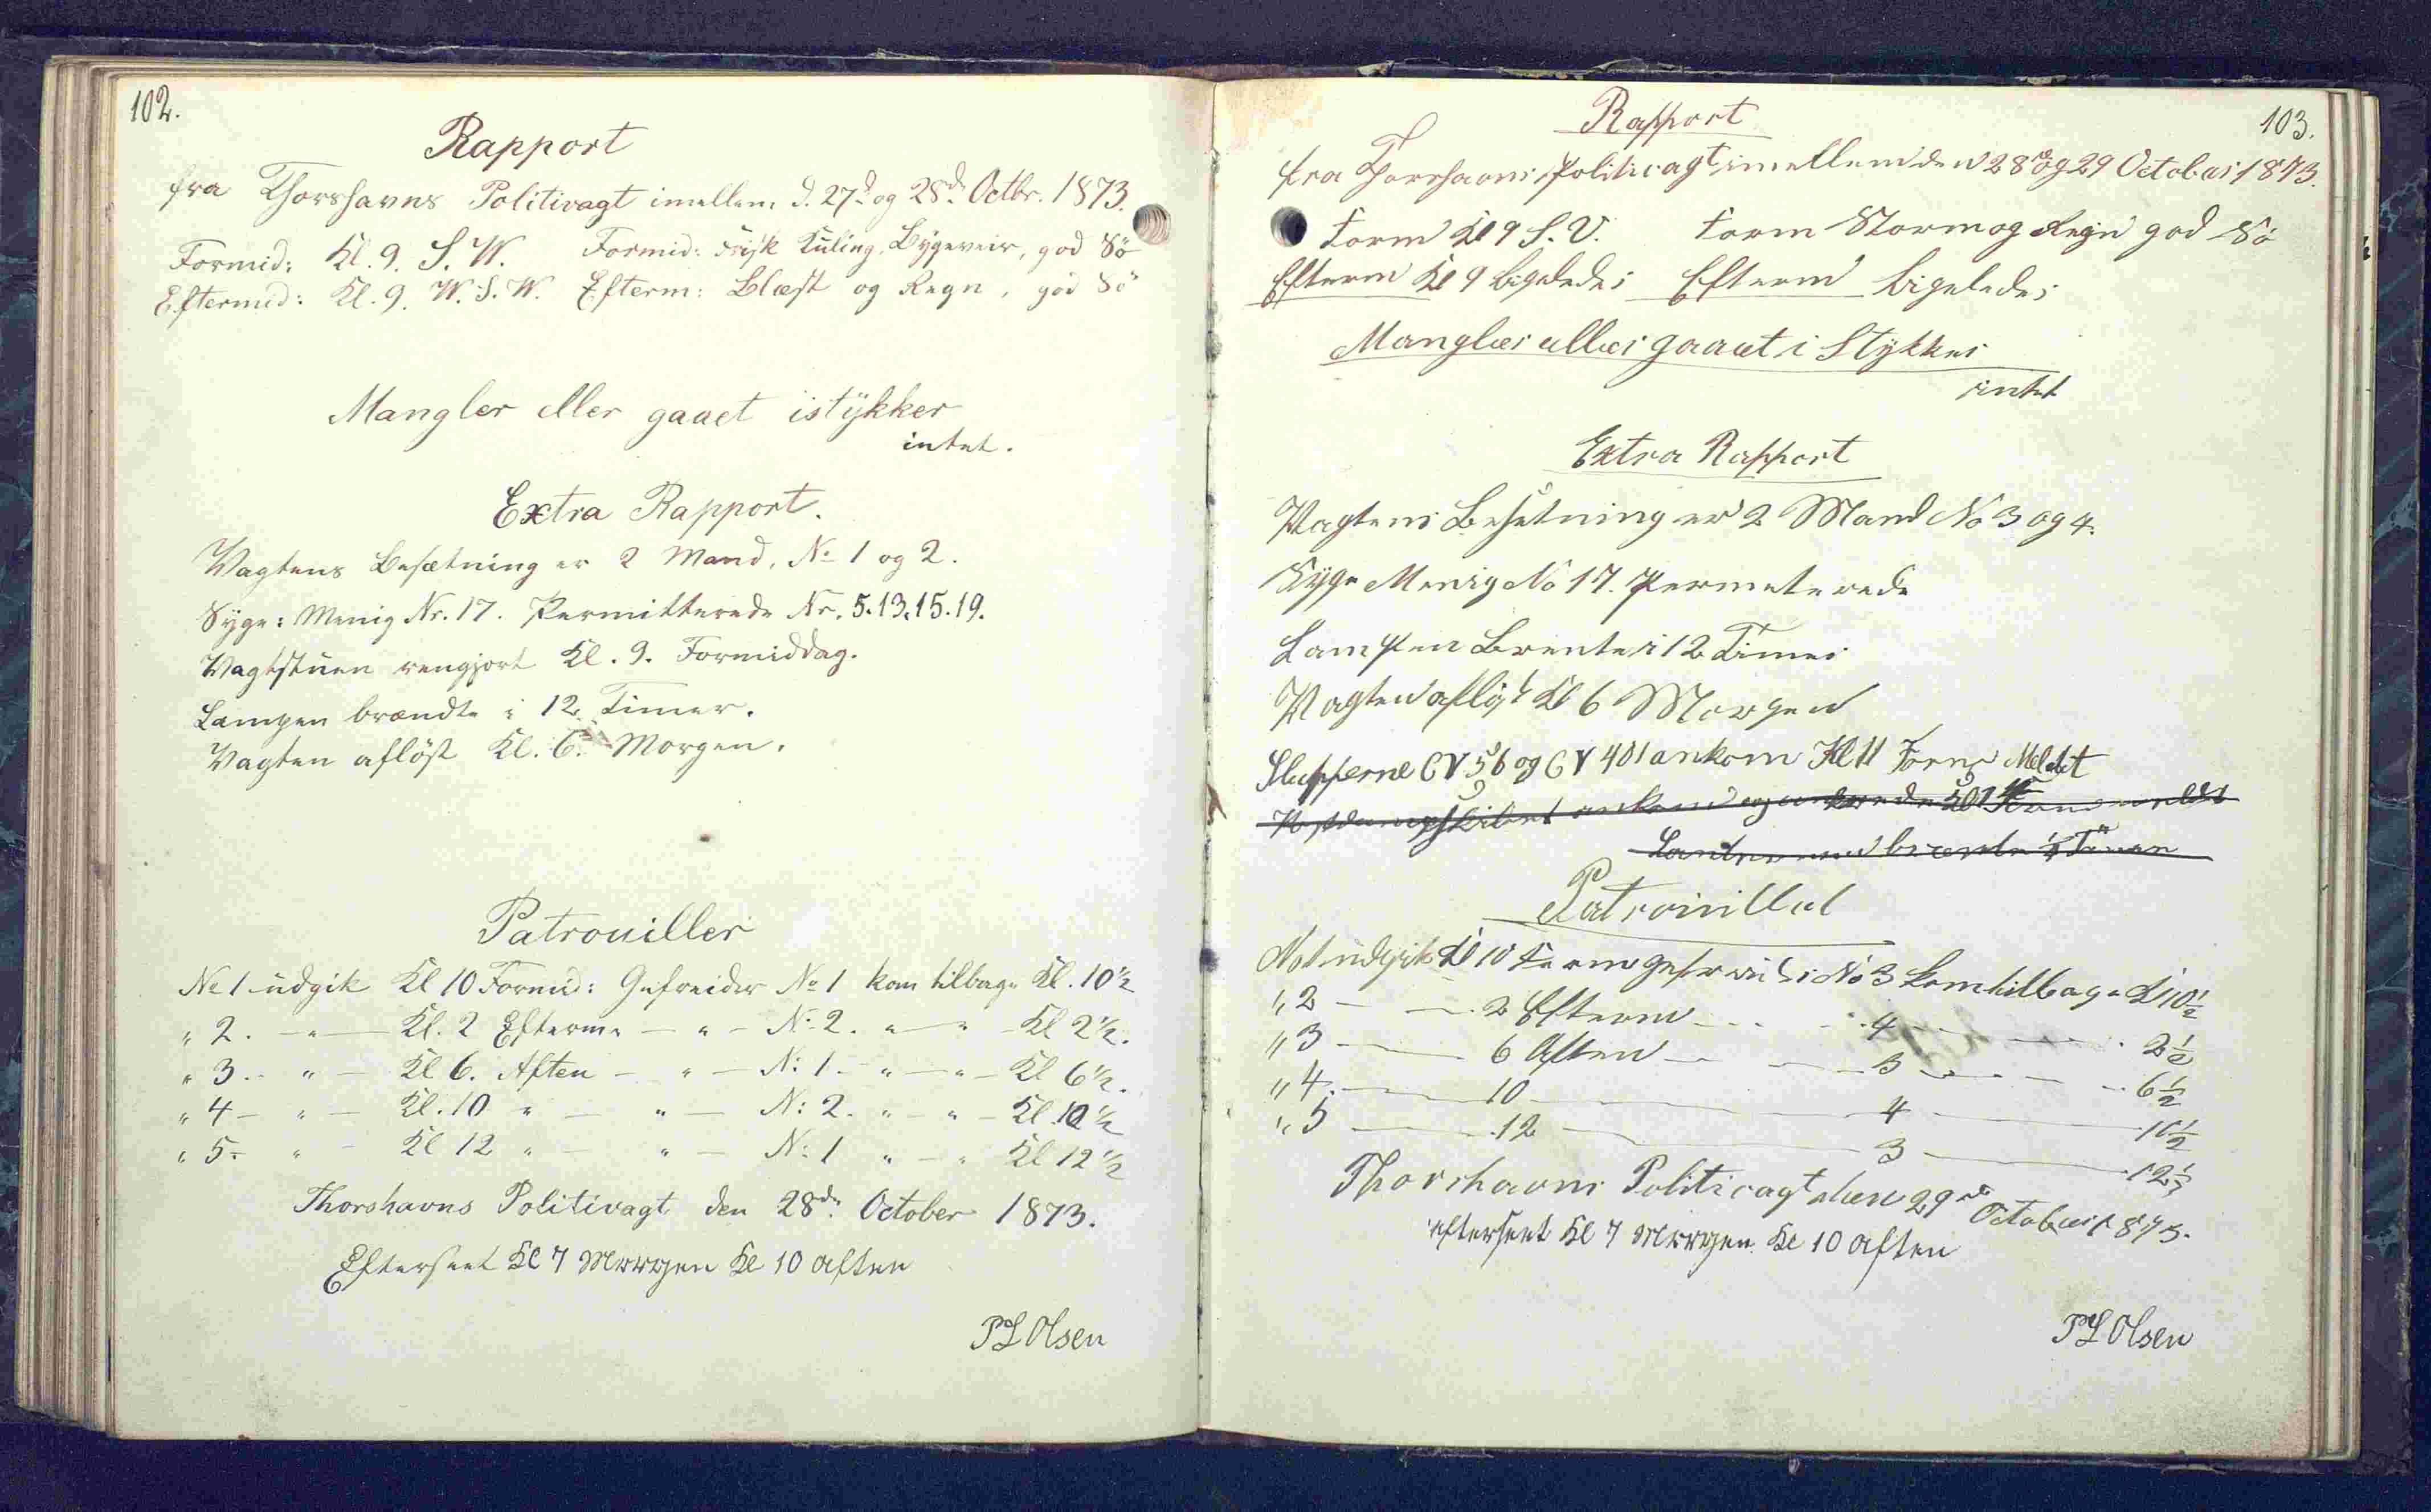 102.
Rapport
fra Thorshavns Politivagt imellem d. 27d og 28d Octbr. 1873.
Formid: Kl. 9. S. W. Formid: Frisk Kuling, Bygeveir, god Sö
Eftermid: Kl. 9. W. S. W. Efterm: Blæst og Regn, god Sö
Mangler eller gaaet istÿkker
intet.
Extra Rapport.
Vagtens Besætning er 2 Mand, No 1 og 2.
Syge: Menig Nr. 17. Permitterede Nr. 5. 13. 15. 19.
Vagtstuen rengjort Kl. 9. Formiddag.
Lampen brændte i 12 Timer.
Vagten aflöst Kl. 6. Morgen.
Patrouiller
No 1 udgik Kl 10 Formid: Gefreider No 1 kom tilbage Kl. 10 1/2
" 2. - " - Kl. 2 Efterm. - " - N: 2. " - " - Kl 2 1/2.
" 3. - " - Kl 6. Aften - " - N: 1 - " - " - Kl 6 1/2.
" 4 - " - Kl. 10 " - " - N: 2. " - " - Kl. 10 1/2
" 5 - " - Kl 12 " - " - N: 1 " - " Kl 12 1/2
Thorshavns Politivagt den 28de October 1873.
Efterseet Kl 7 Morgen Kl 10 Aften
P L Olsen
103.
Rapport
fra Thorshavns Politivagt imellem den 28 og 29 October 1873.
Form Kl 9 S. V. Form Storm og Regn god Sö
Efterm Kl 9 ligeledes Efterm ligeledes
Mangler eller gaaet i Stykker
intet
Extra Rapport
Vagtens Besetning er 2 Mand No 3 og 4.
Syge Menig No 17. Permeterede
Lampen Brente i 12 Timer
Vagten aflöst Kl 6 Morgen
Slupperne CV 56 og CV 401 ankom Kl 11 Form Meldet
Postdampskibet ankom og
Patrouillel
No 1 udgik Kl 10 Form gefreider No 3 kom tilbage Kl 10 1/2
" 2 - - 2 Efterm - - 4 - - 2 1/2
" 3 - - 6 Aften - - 3 - - 6 1/2
" 4. - - 10 - - 4 - - 10 1/2
" 5 - - 12 - - 3 - - 12 1/2
Thorshavns Politivagt den 29de October 1873.
Efterseet Kl 7 Morgen Kl 10 Aften
P L Olsen